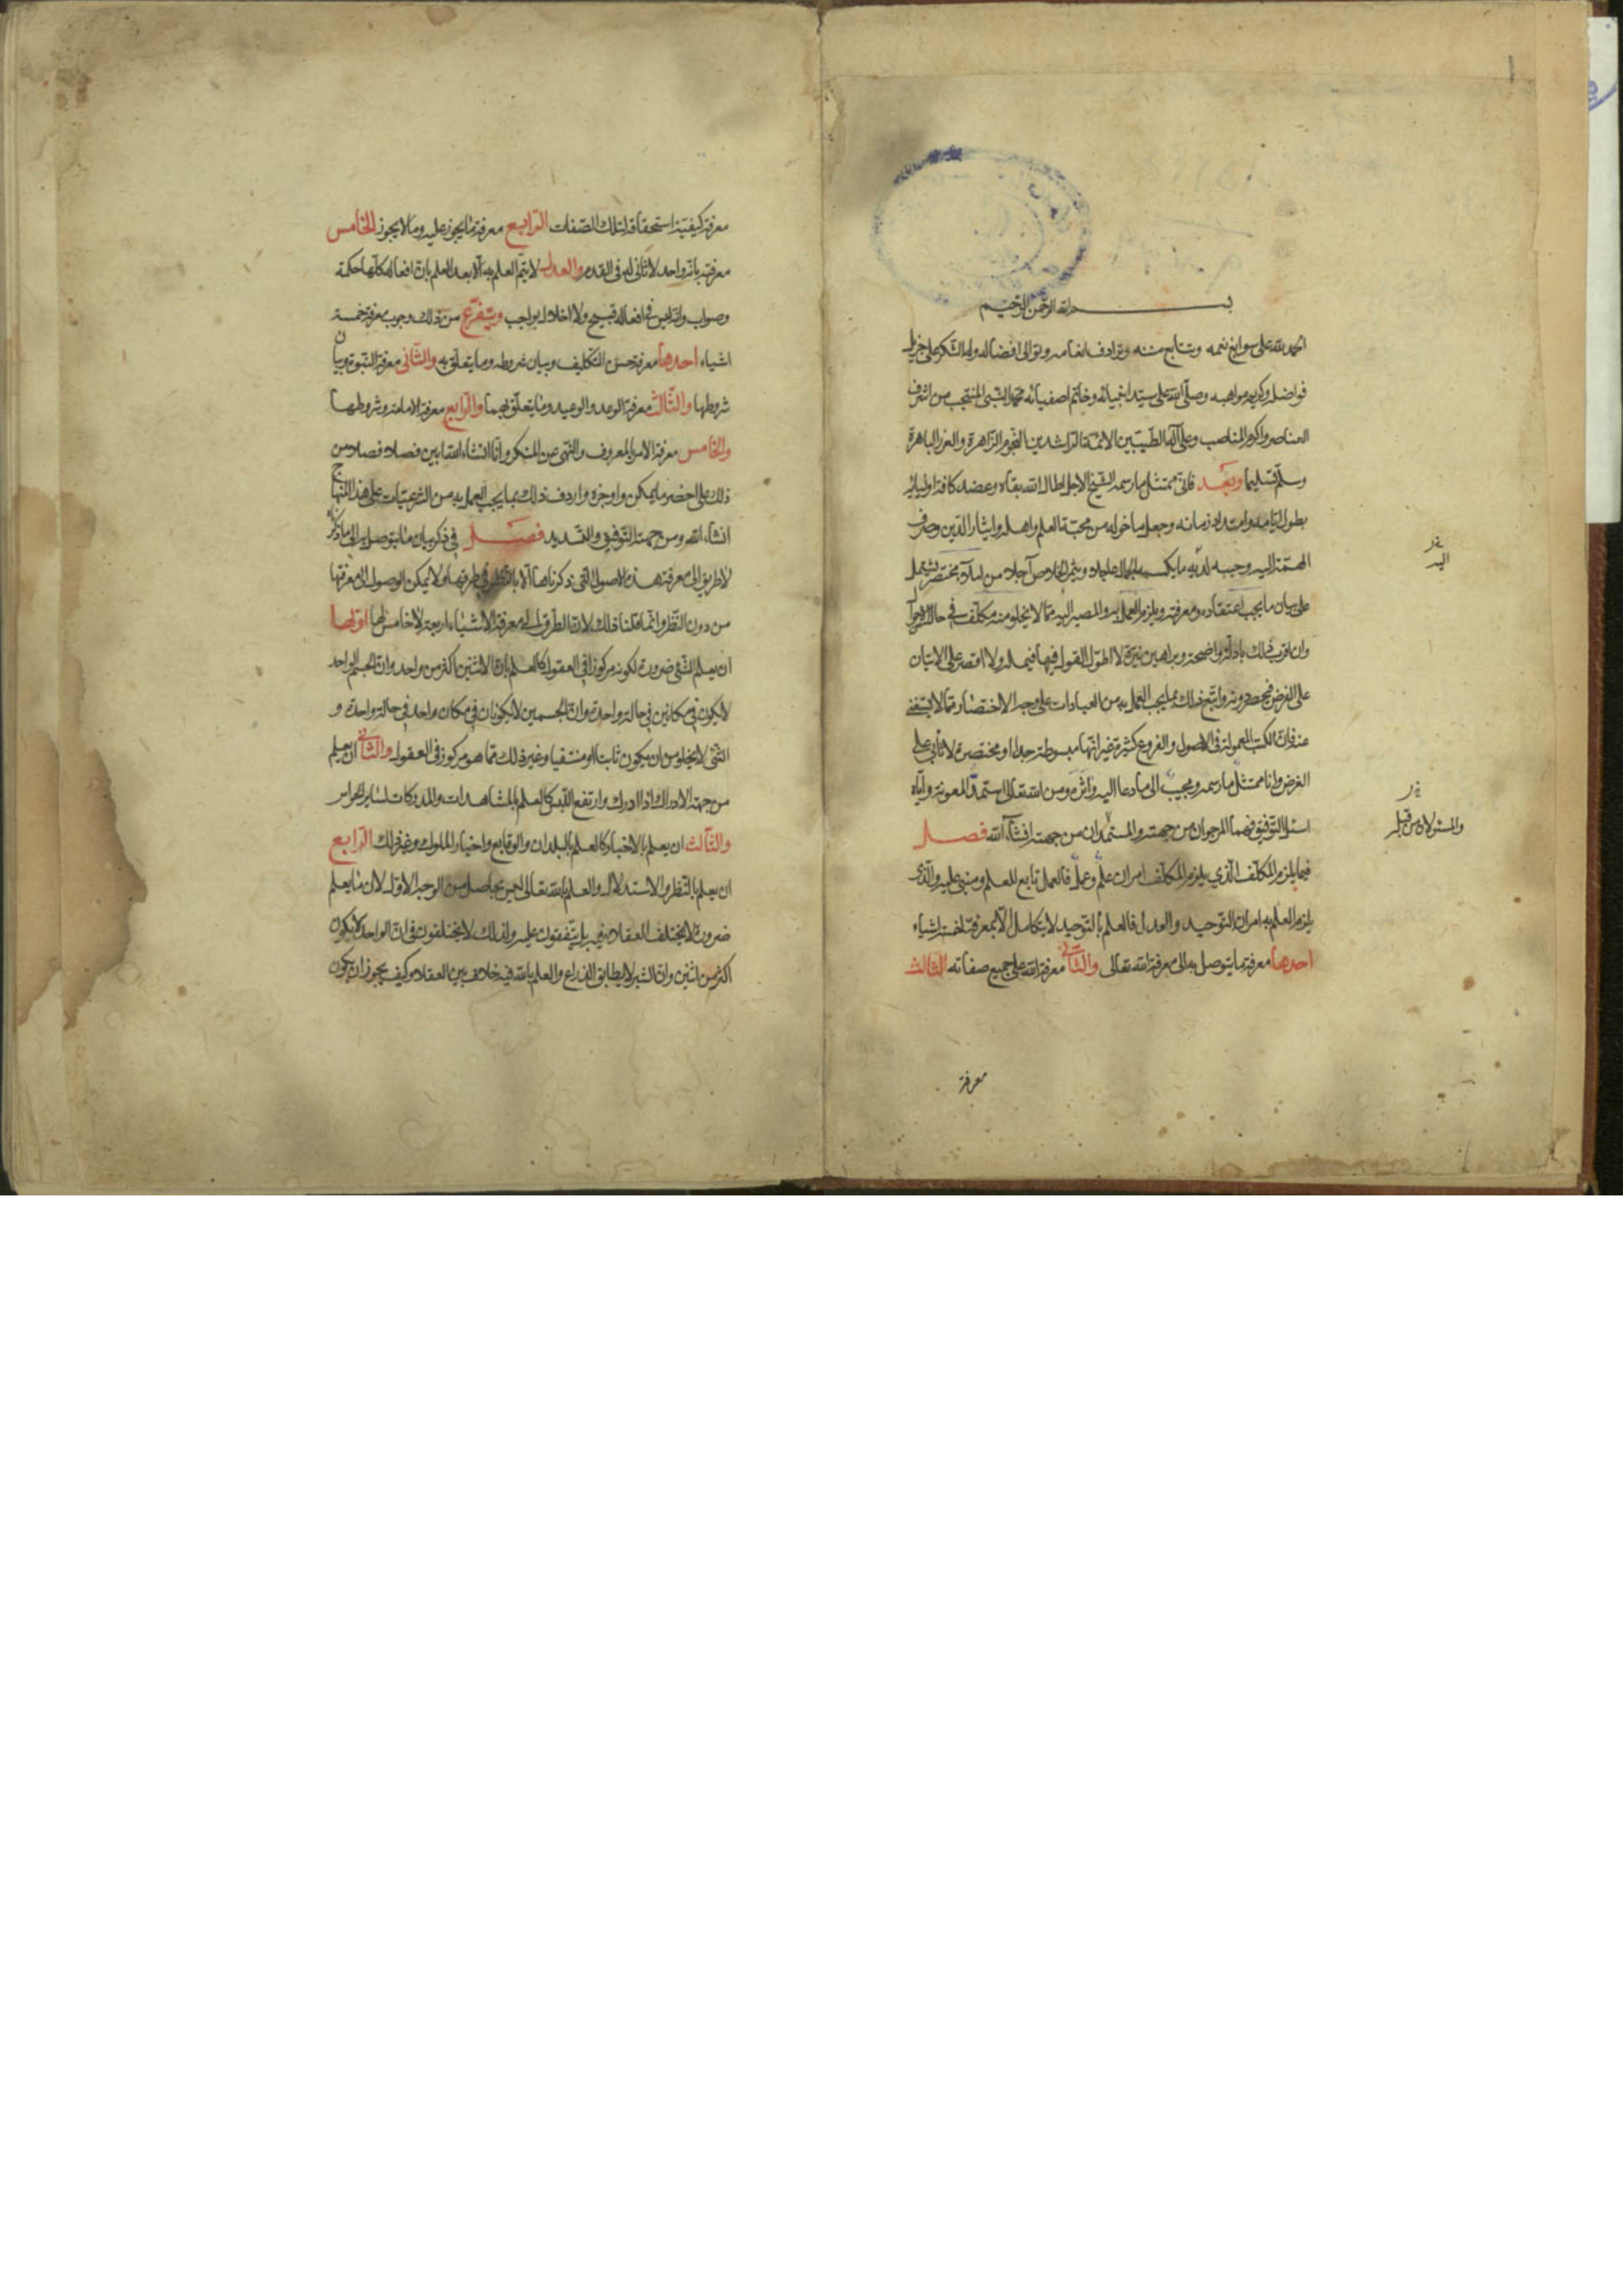 بسم الله الرحمن الرحيم
الحمد لله على سوابغ نعمه وتتابع مننه وترادف انعامه وتوالى افضاله وله الشكر على جزيل
فواضله وكريم مواهبه وصلى الله على سيد انبيائه وخاتم اصفيائه محمد النبى المنتجب من اشرف
العناصر واكرم المناصب وعلى آله الطيبين الائمة الراشدين النجوم الزاهرة والغرر الباهرة
وسلم تسليما وبعد فانى ممتثل ما رسمه الشيخ الاجل اطال الله بقاه وعضد كافة اوليائه
بطول ايامه وامتداد زمانه وجعل ما خوله من محبة العلم واهله وايثار الدين وصرف
الهمة اليه وحببه لديه ما يكسبه الجمال عاجلا ويثمر الخلاص آجلا من املاء مختصر يشتمل
على بيان ما يجب اعتقاده ومعرفته ويلزم العمل به والمصير اليه مما لا يخلو منه مكلف فى حال الاحوال
وان اقرب ذلك بادلة واضحة وبراهين نيرة لا اطول القول فيها فيمل ولا اقتصر على الاتيان
على الغرض دونه واتبع ذلك بما يجب العمل به من العبادات على وجه الاختصار مما لا يستغنى
عنه فان الكتب المعمولة فى الاصول والفروع كثيرة غير انها مبسوطة جدا او مختصرة لا تأتى على
الغرض وانا ممتثل ما رسمه ومجيب الى ما دعا اليه واثره ومن الله تعالى استمد المعونة واياه
اسئل التوفيق فهما المرجوان من جهته والمستمدان من جهته انشاء الله فصل
فيما يلزم المكلف الذي يلزم المكلف امران علم وعمل فالعمل تابع للعلم ومبنى عليه والذى
يلزم العلم به امران التوحيد والعدل فالعلم بالتوحيد لا يتكامل الا بمعرفة خمسة اشياء
احدها معرفة ما يتوصل به الى معرفة الله تعالى والثانى معرفة الله على جميع صفاته الثالث
معرفة
اليه
والمسئولان من قبل
معرفة كيفية استحقاقه لتلك الصفات الرابع معرفة ما يجوز عليه وما لا يجوز الخامس
معرفته بانه واحد لا ثانى له فى القدم والعدل لا يتم العلم به الا بعد العلم بان افعاله كلها حكمة
وصواب وانه ليس فى افعاله قبيح ولا اخلال بواجب ويتفرع من ذلك وجوب معرفة خمسة
اشياء احدها معرفة حسن التكليف وبيان شروطه وما يتعلق به والثانى معرفة النبوة وبيان
شروطها والثالث معرفة الوعد والوعيد وما يتعلق بهما والرابع معرفة الامامة وشروطها
والخامس معرفة الامر بالمعروف والنهى عن المنكر وانا انشاء الله ابين فصلا فصلا من
ذلك على اخصر ما يمكن واوجزه واردف ذلك بما يجب العمل به من الشرعيات على هذا المنهاج
انشاء الله ومن جهته التوفيق والتسديد فصل فى ذكر بيان ما يتوصل به الى ما ذكرناه
لا طريق الى معرفة هذه الاصول التى ذكرناها الا بالنظر فى طرقها ولا يمكن الوصول الى معرفتها
من دون النظر وانما قلنا ذلك لان الطرق الى معرفة الاشياء اربعة لا خامس لها اولها
ان يعلم الشئ ضرورة لكونه مركوزا فى العقول كالعلم بان الاثنين اكثر من واحد وان الجسم الواحد
لا يكون فى مكانين فى حالة واحدة وان الجسمين لا يكونان فى مكان واحد فى حالة واحدة و
الشئ لا يخلو من ان يكون ثابتا او منتفيا وغير ذلك مما هو مركوز فى العقول والثانى ان يعلم
من جهة الادراك اذا ادرك وارتفع اللبس كالعلم بالمشاهدات والمدركات لسائر الحواس
والثالث ان يعلم بالاخبار كالعلم بالبلدان والوقايع واخبار الملوك وغير ذلك الرابع
ان يعلم بالنظر والاستدلال والعلم بالله تعالى ليس بحاصل من الوجه الاول لان ما يعلم
ضرورة لا يختلف العقلاء فيه بل يتفقون عليه ولذلك لا يختلفون فى ان الواحد لا يكون
اكثر من اثنين وان الشبر لا يطابق الذراع والعلم بالله فيه خلاف بين العقلاء وكيف يجوز ان يكون